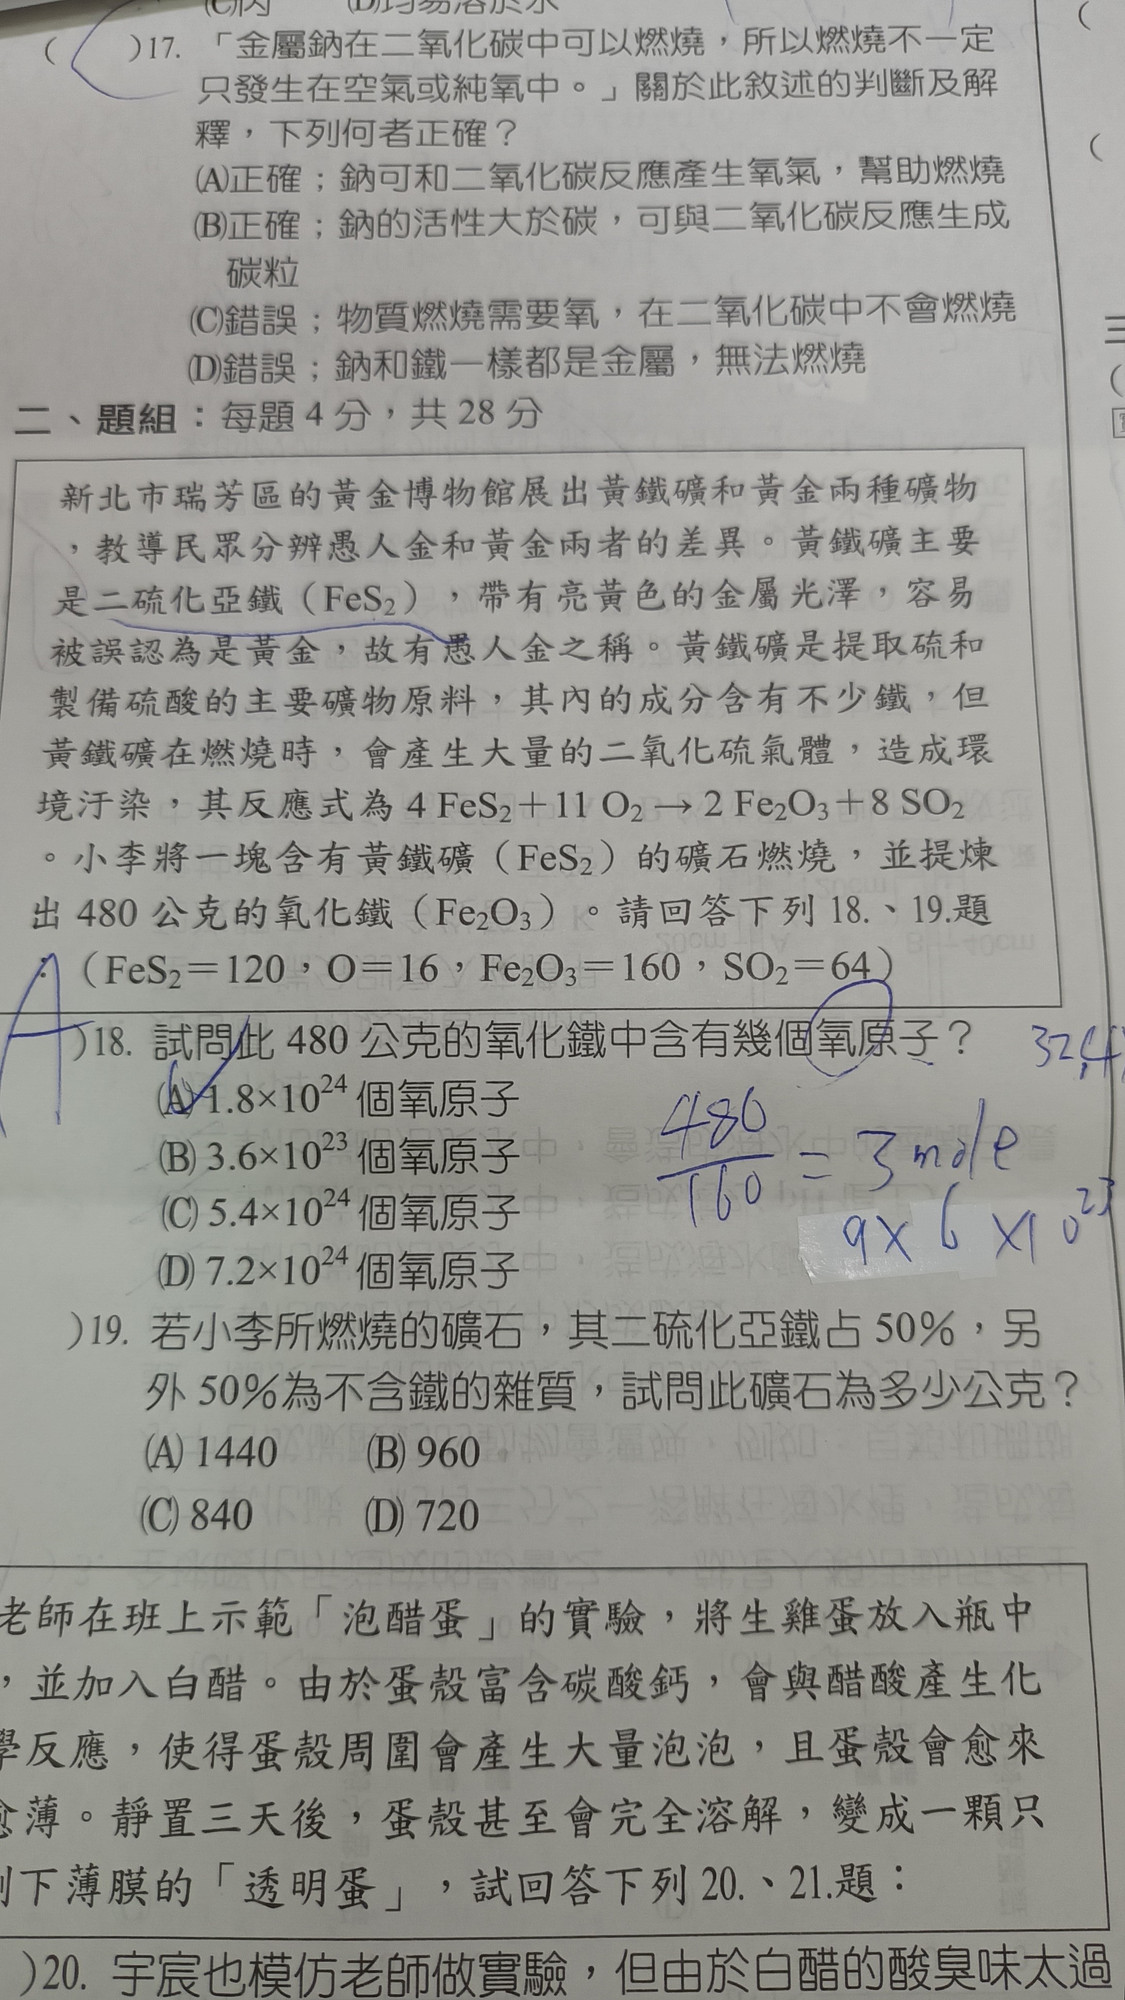 (C)丙 (D)均易溶於水
( )17. 「金屬鈉在二氧化碳中可以燃燒，所以燃燒不一定
只發生在空氣或純氧中。」關於此敘述的判斷及解
釋，下列何者正確？
(A)正確；鈉可和二氧化碳反應產生氧氣，幫助燃燒
(B)正確；鈉的活性大於碳，可與二氧化碳反應生成
碳粒
(C)錯誤；物質燃燒需要氧，在二氧化碳中不會燃燒
(D)錯誤；鈉和鐵一樣都是金屬，無法燃燒
二、題組：每題 4 分，共 28 分
新北市瑞芳區的黃金博物館展出黃鐵礦和黃金兩種礦物
，教導民眾分辨愚人金和黃金兩者的差異。黃鐵礦主要
是二硫化亞鐵（FeS₂），帶有亮黃色的金屬光澤，容易
被誤認為是黃金，故有愚人金之稱。黃鐵礦是提取硫和
製備硫酸的主要礦物原料，其內的成分含有不少鐵，但
黃鐵礦在燃燒時，會產生大量的二氧化硫氣體，造成環
境汙染，其反應式為 4 FeS₂＋11 O₂→2 Fe₂O₃＋8 SO₂
。小李將一塊含有黃鐵礦（FeS₂）的礦石燃燒，並提煉
出 480 公克的氧化鐵（Fe₂O₃）。請回答下列 18.、19.題
：（FeS₂＝120，O＝16，Fe₂O₃＝160，SO₂＝64）
A
)18. 試問此 480 公克的氧化鐵中含有幾個氧原子？
(A) 1.8×10²⁴ 個氧原子
(B) 3.6×10²³ 個氧原子
(C) 5.4×10²⁴ 個氧原子
(D) 7.2×10²⁴ 個氧原子
480/160 = 3 mole
9×6×10²³
)19. 若小李所燃燒的礦石，其二硫化亞鐵占 50%，另
外 50%為不含鐵的雜質，試問此礦石為多少公克？
(A) 1440 (B) 960
(C) 840 (D) 720
老師在班上示範「泡醋蛋」的實驗，將生雞蛋放入瓶中
，並加入白醋。由於蛋殼富含碳酸鈣，會與醋酸產生化
學反應，使得蛋殼周圍會產生大量泡泡，且蛋殼會愈來
愈薄。靜置三天後，蛋殼甚至會完全溶解，變成一顆只
剩下薄膜的「透明蛋」，試回答下列 20.、21.題：
)20. 宇宸也模仿老師做實驗，但由於白醋的酸臭味太過